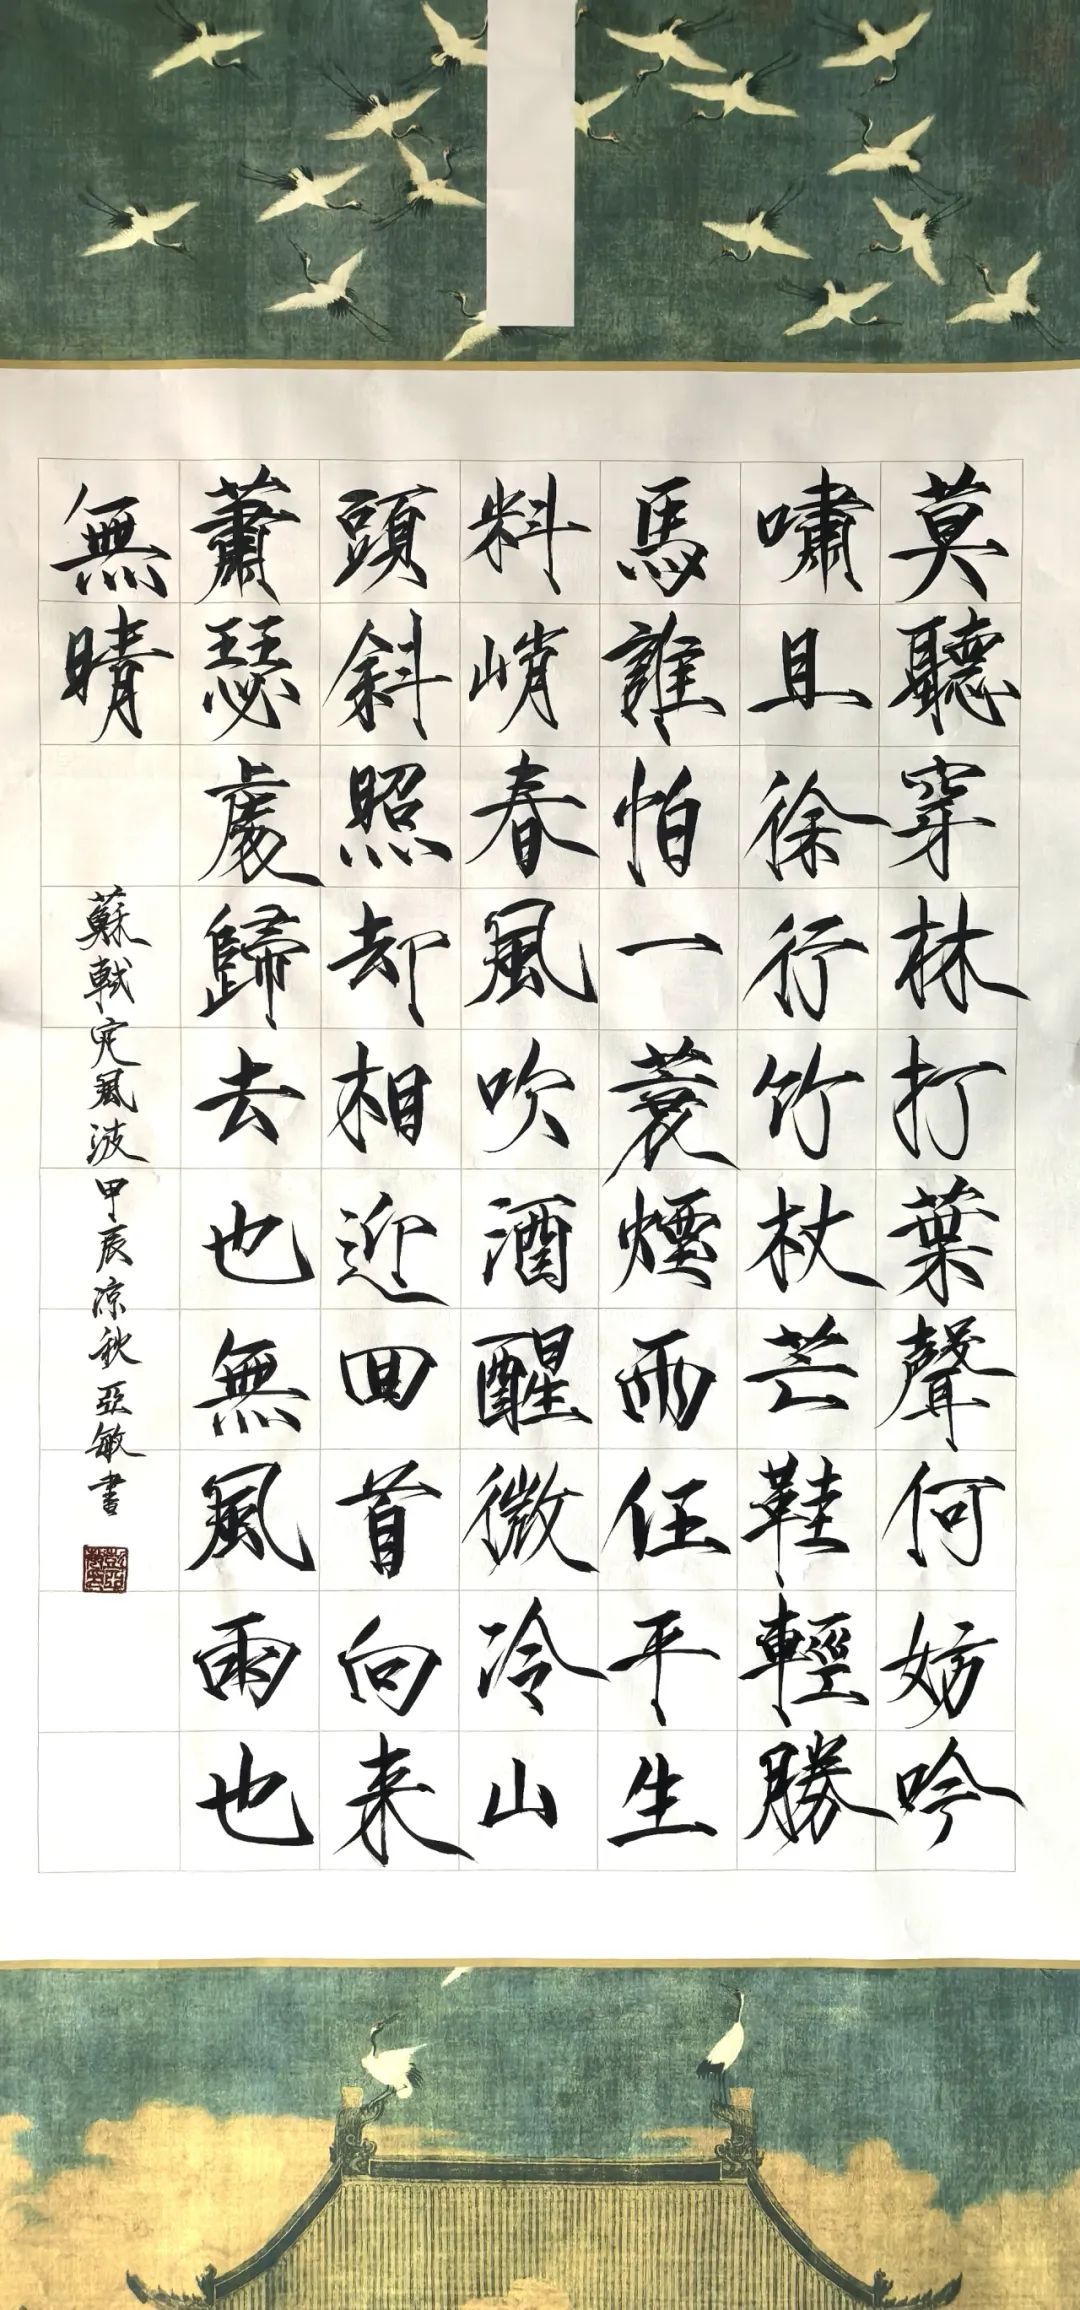 莫聽穿林打葉聲何妨吟
嘯且徐行竹杖芒鞋輕勝
馬誰怕一蓑煙雨任平生
料峭春風吹酒醒微冷山
頭斜照却相迎回首向来
蕭瑟處歸去也無風雨也
無晴
蘇軾定風波甲辰涼秋亞敏書